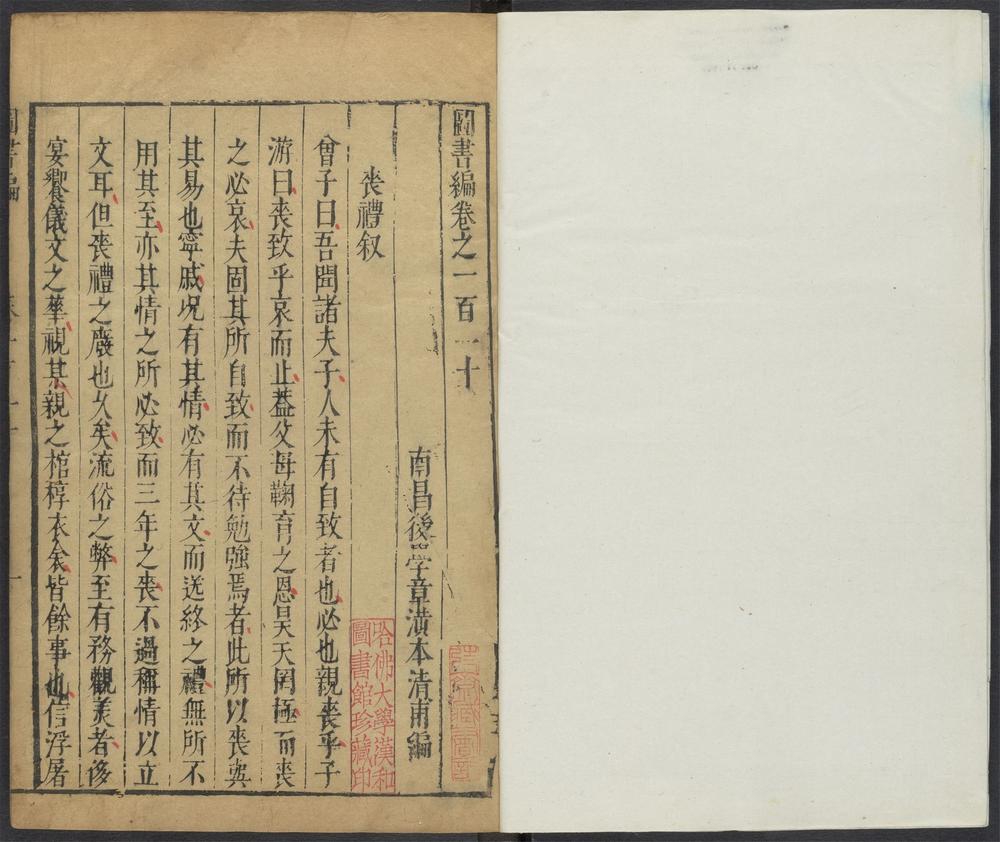 圖書編卷之一百一十
南昌後學章潢本清甫編
喪禮叙
曾子曰吾聞諸夫子人未有自致者也必也親喪乎子
游曰喪致乎哀而止蓋父母鞠育之恩昊天罔極而喪
之必哀夫固其所自致而不待勉強焉者此所以喪與
其易也寧戚况有其情必有其文而送終之禮無所不
用其至亦其情之所必致而三年之喪不過稱情以立
文耳但喪禮之廢也乆矣流俗之弊至有務觀美者侈
宴饗儀文之華視其親之棺稕衣衾皆餘事也信浮屠
圖書編
哈佛大學漢和
圖書館珍藏印